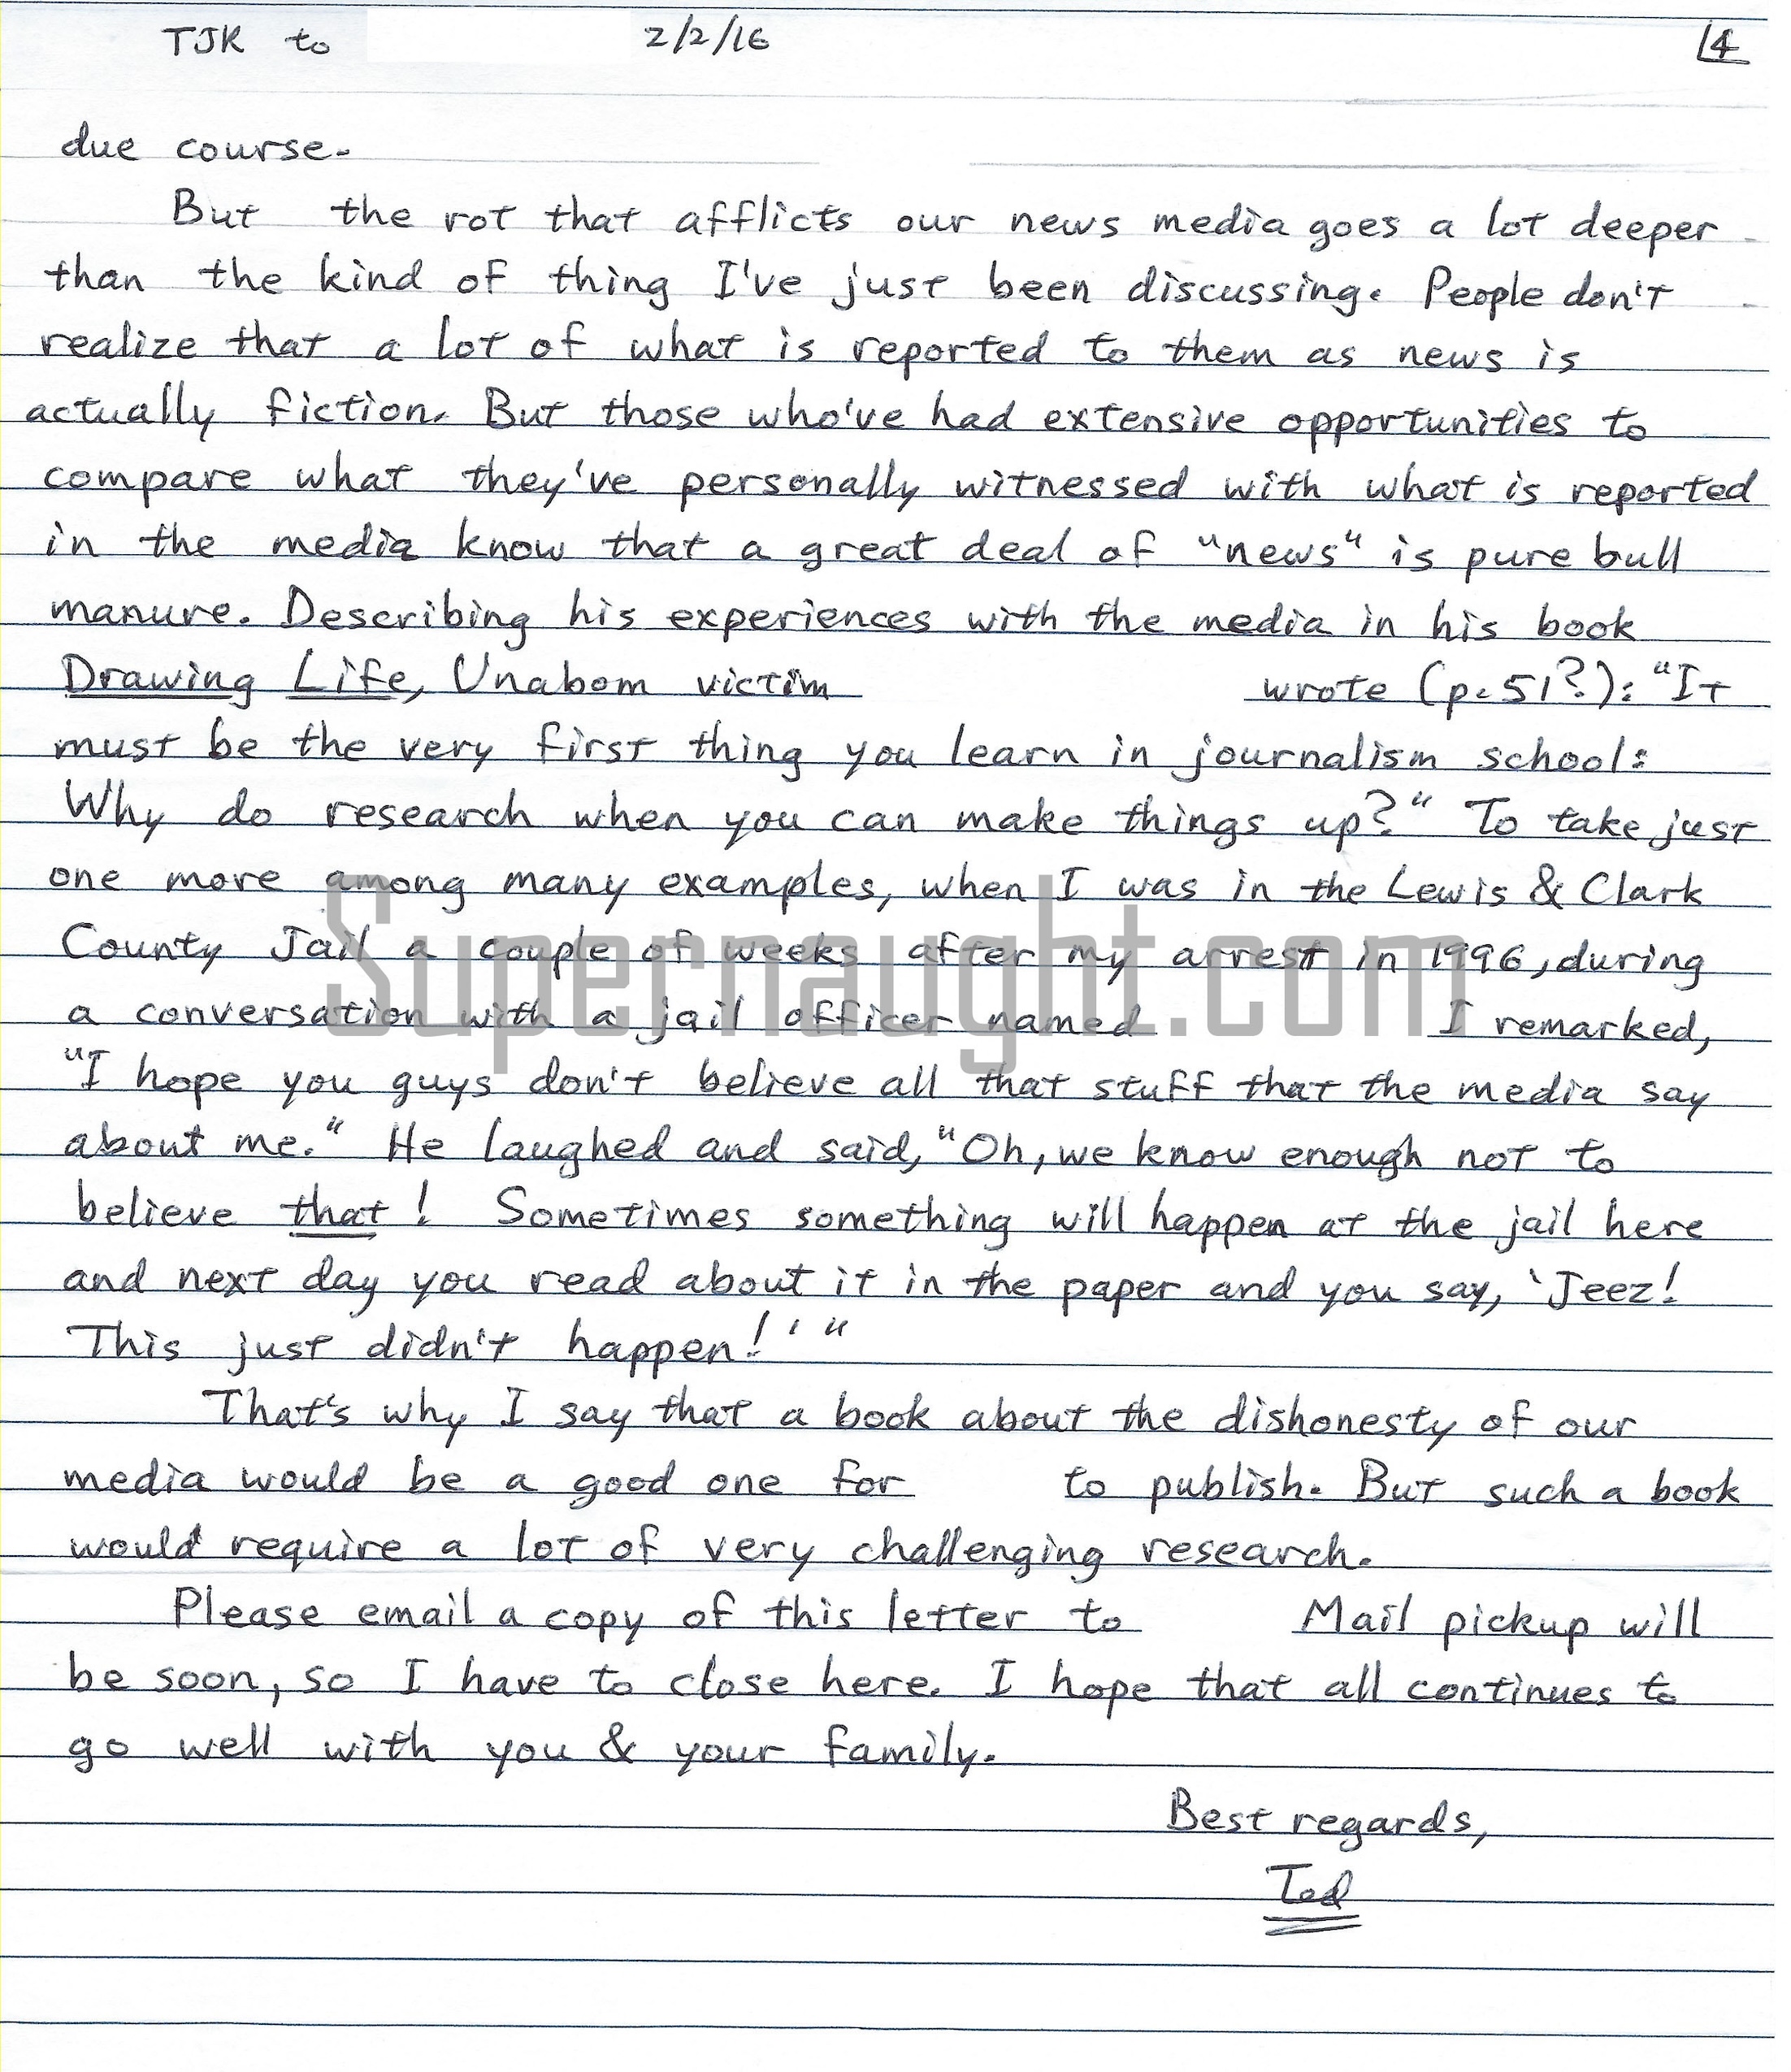 TJK to 2/2/16 4
due course.
But the rot that afflicts our news media goes a lot deeper
than the kind of thing I've just been discussing. People don't
realize that a lot of what is reported to them as news is
actually fiction. But those who've had extensive opportunities to
compare what they've personally witnessed with what is reported
in the media know that a great deal of "news" is pure bull
manure. Describing his experiences with the media in his book
Drawing Life, Unabom victim wrote (p. 51?): "It
must be the very first thing you learn in journalism school:
Why do research when you can make things up?" To take just
one more among many examples, when I was in the Lewis & Clark
County Jail a couple of weeks after my arrest in 1996, during
a conversation with a jail officer named I remarked,
"I hope you guys don't believe all that stuff that the media say
about me." He laughed and said, "Oh, we know enough not to
believe that! Sometimes something will happen at the jail here
and next day you read about it in the paper and you say, 'Jeez!
This just didn't happen!'"
That's why I say that a book about the dishonesty of our
media would be a good one for to publish. But such a book
would require a lot of very challenging research.
Please email a copy of this letter to Mail pickup will
be soon, so I have to close here. I hope that all continues to
go well with you & your family.
Best regards,
Ted
Supernaught.com